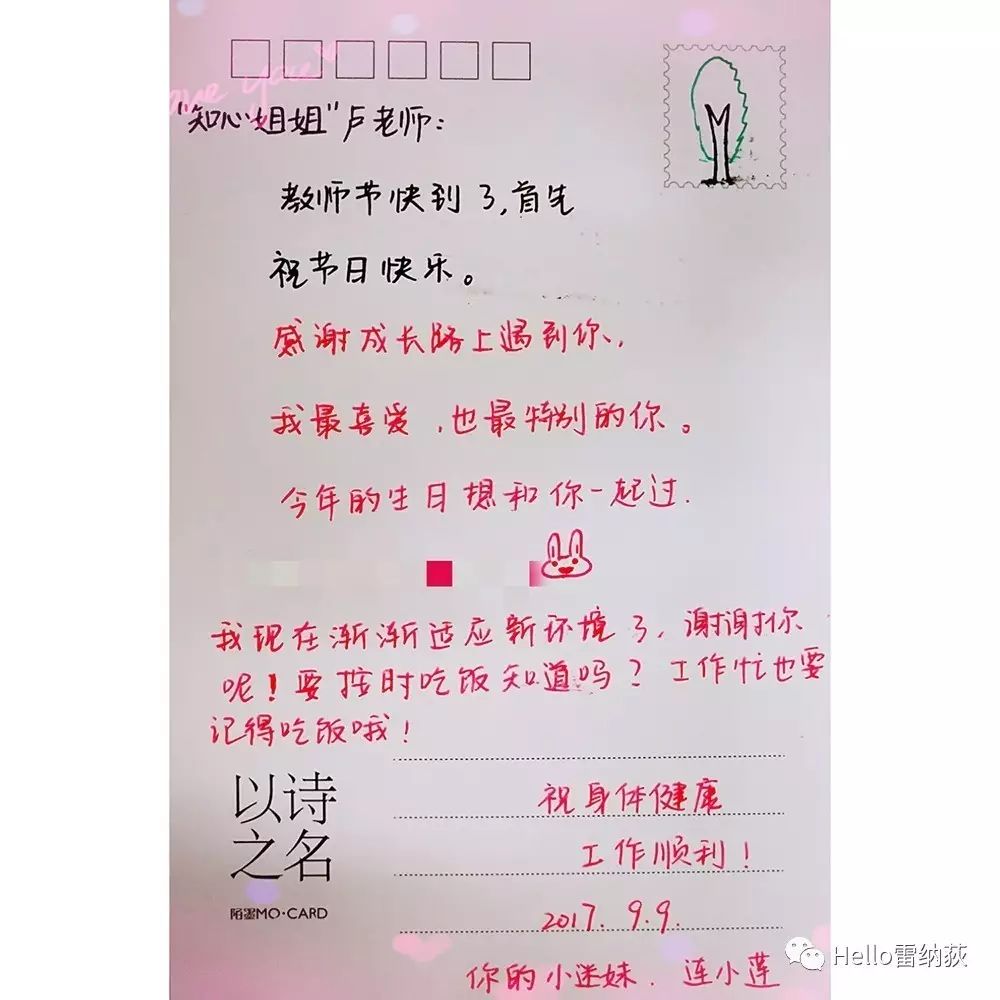 Love you
"知心姐姐"卢老师:
教师节快到了,首先
祝节日快乐。
感谢成长路上遇到你,
我最喜爱,也最特别的你。
今年的生日想和你一起过.
我现在渐渐适应新环境了,谢谢你
呢!要按时吃饭知道吗?工作忙也要
记得吃饭哦!
以诗
之名
陌墨MO·CARD
祝身体健康
工作顺利!
2017.9.9.
你的小迷妹.连小莲
Hello雷纳荻